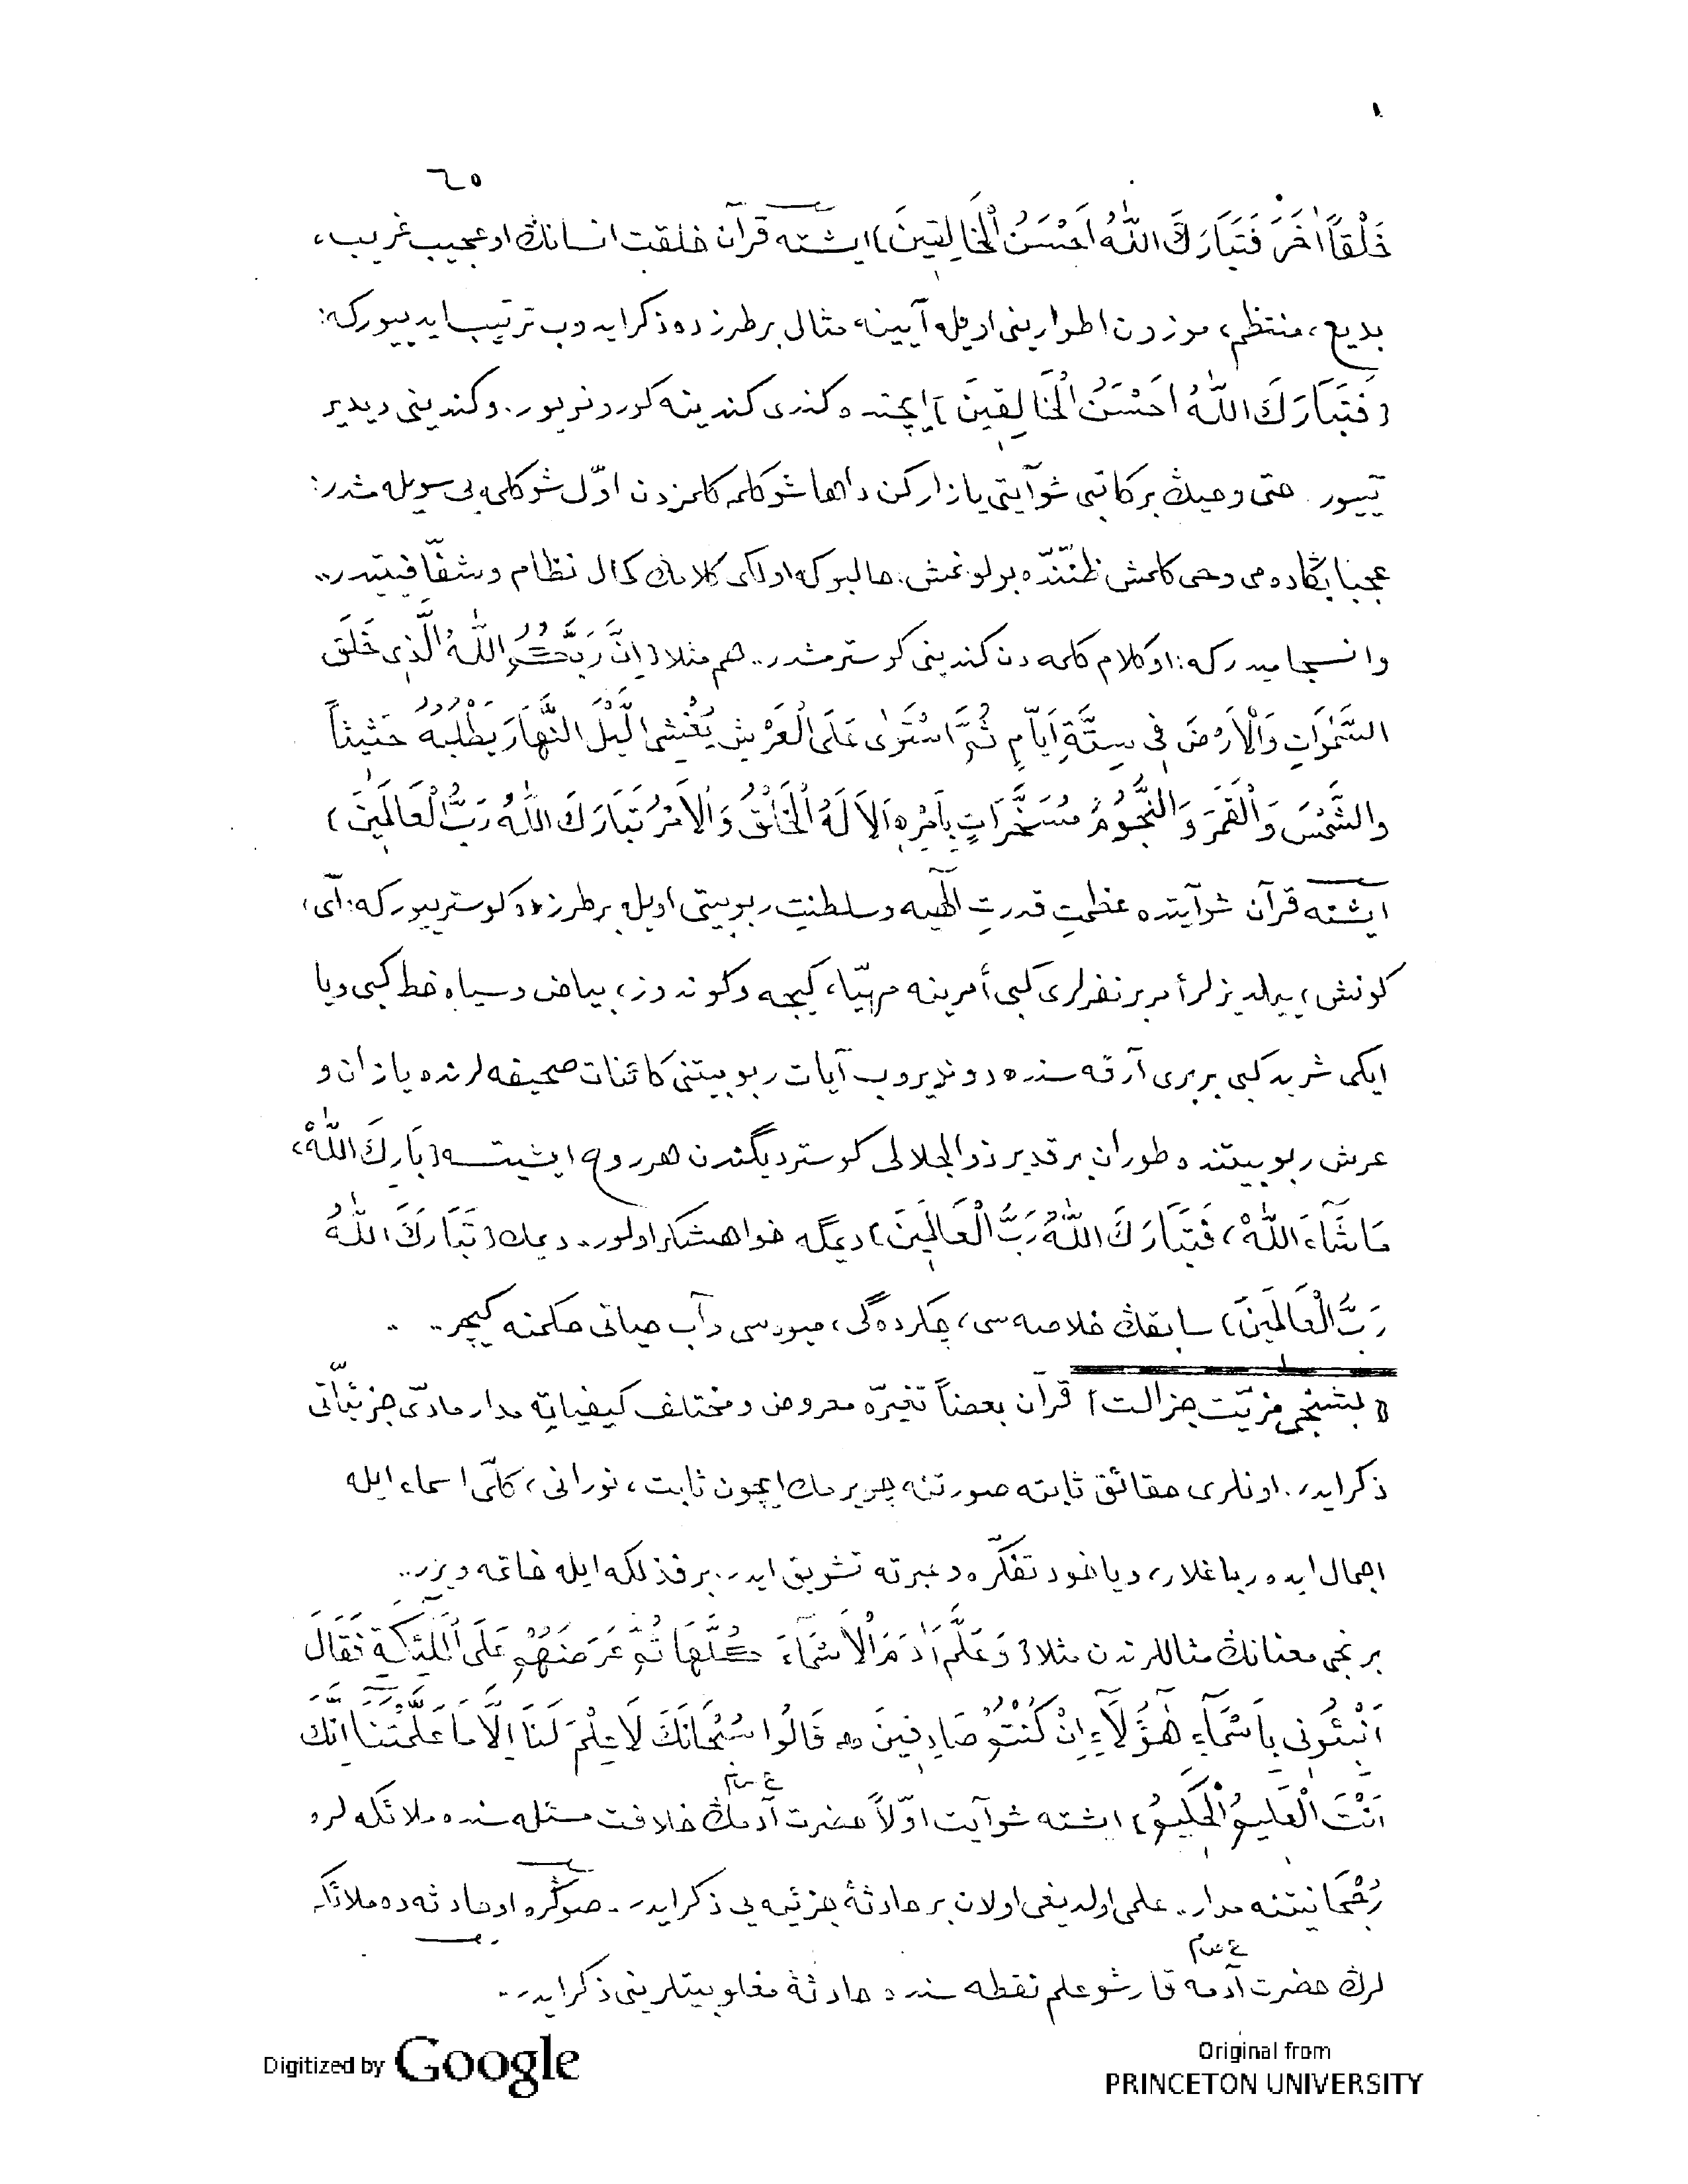 ٦٥
خَلْقاً اٰخَرَ فَتَبَارَكَ اللّٰهُ اَحْسَنُ الْخَالِقِينَ) ايشته قرآن خلقت انسانڭ او عجيب غريب،
بديع، منتظم، موزون اطوارينى اويله آيينه مثال بر طرزده ذكر ايدوب ترتيب ايدييوركه:
(فَتَبَارَكَ اللّٰهُ اَحْسَنُ الْخَالِقِينَ) ايچنده كندى كندينه كورونويور. وكندينى ديدير
تييور. حتى وحيڭ بر كاتبى شو آيتى يازاركن داها شو كلمه كلمزدن اوّل شو كلمه يى سويله مشدر:
عجبا بڭاده مى وحى كلمش ظنّنده بولونمش. حالبوكه اولكى كلامڭ كمال نظام وشفّافيتيدر..
وانسجاميدركه: او كلام كلمه دن كندينى كوسترمشدر.. هم مثلا (اِنَّ رَبَّكُمُ اللّٰهُ الَّذِى خَلَقَ
السَّمٰوَاتِ وَاْلاَرْضَ فِى سِتَّةِ اَيَّامٍ ثُمَّ اسْتَوٰى عَلَى الْعَرْشِ يُغْشِى الَّيْلَ النَّهَارَ يَطْلُبُهُ حَثِيثاً
وَالشَّمْسَ وَالْقَمَرَ وَالنُّجُومَ مُسَخَّرَاتٍ بِاَمْرِهِ اَلاَ لَهُ الْخَلْقُ وَاْلاَمْرُ تَبَارَكَ اللّٰهُ رَبُّ الْعَالَمِينَ)
ايشته قرآن شو آيتده عظمتِ قدرتِ الٰهيه وسلطنتِ ربوبيتى اويله بر طرزده كوسترييوركه: آى،
كونش، ييلديزلر أمربر نفرلرى كبى أمرينه مهيّا، كيجه وكوندوز، بياض وسياه خط كبى ويا
ايكى شريد كبى بربرى آرقه سنده دونديروب آيات ربوبيتنى كائنات صحيفه لرنده يازان و
عرش ربوبيتنده طوران بر قدير ذو الجلالى كوسترديگندن هر روح ايشيتسه (بَارَكَ اللّٰهْ،
مَاشَآءَ اللّٰهْ، فَتَبَارَكَ اللّٰهُ رَبُّ الْعَالَمِينَ) ديمگه خواهشكر اولور.. ديمك (تَبَارَكَ اللّٰهُ
رَبُّ الْعَالَمِينَ) سابقڭ خلاصه سى، چكرده گى، ميوه سى وآب حياتى حكمنه كيچر..
(بشنجى مزيّت جزالت) قرآن بعضاً تغيّره معروض ومختلف كيفياته مدار مادّى جزئيّاتى
ذكر ايدر. اونلرى حقائق ثابته صورتنه چويرمك ايچون ثابت، نورانى، كلّى اسماء ايله
اجمال ايدەر باغلار، وياخود تفكّره وعبرته تشويق ايدر بر فذلكه ايله خاتمه ويرر..
برنجى معنانڭ مثاللرندن مثلا (وَعَلَّمَ اٰدَمَ اْلاَسْمَآءَ كُلَّهَا ثُمَّ عَرَضَهُمْ عَلَى الْمَلٰٓئِكَةِ فَقَالَ
اَنْبِئُونِى بِاَسْمَآءِ هٰٓؤُلآَءِ اِنْ كُنْتُمْ صَادِقِينَ قَالُوا سُبْحَانَكَ لاَ عِلْمَ لَنَآ اِلاَّ مَا عَلَّمْتَنَا اِنَّكَ
اَنْتَ الْعَلِيمُ الْحَكِيمُ) ايشته شو آيت اوّلاً حضرت آدمڭ خلافت مسئله سنده ملائكه لره
رُجْحَانيتنه مدار.. علمى اولديغى اولان بر حادثۀ جزئيه يى ذكر ايدر.. صوڭره او حادثه ده ملائكه
لرڭ حضرت آدمه قارشو علم نقطه سنده حادثۀ مغلوبيتلرينى ذكر ايدر..
Digitized by Google
Original from
PRINCETON UNIVERSITY